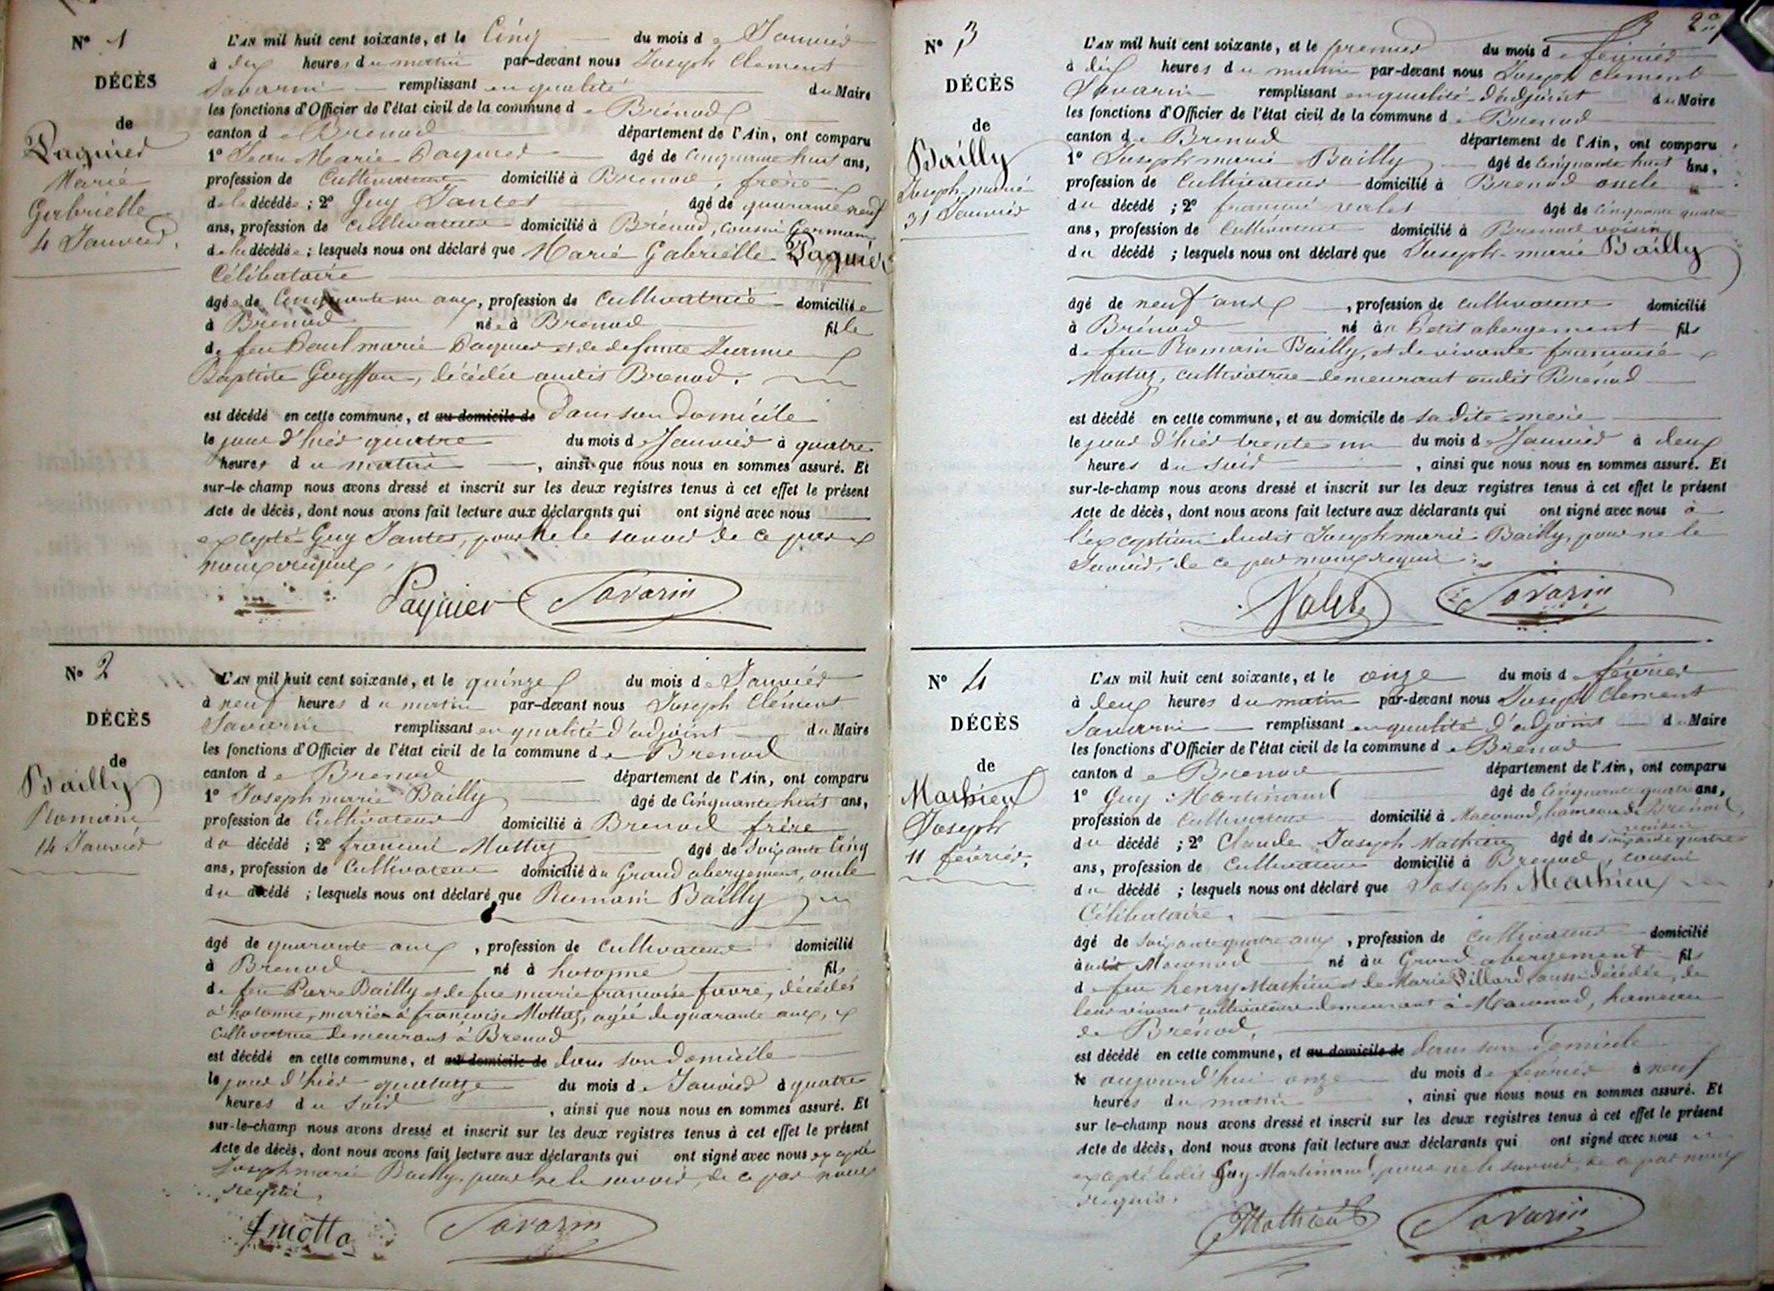 N° 1
DÉCÈS
de
Paquier
Marie
Gabrielle
4 Janvier.
L'AN mil huit cent soixante, et le Cinq du mois de Janvier
à dix heures du matin par-devant nous Joseph Clément
Savarin remplissant en qualité du Maire
les fonctions d'Officier de l'état civil de la commune de Brénod
canton de Brenod département de l'Ain, ont comparu
1° Jean Marie Paquier âgé de Cinquante huit ans,
profession de Cultivateur domicilié à Brenod, frère
de la décédée ; 2° Guy Tantet âgé de quarante neuf
ans, profession de cultivateur domicilié à Brénod, cousin Germain
de la décédée ; lesquels nous ont déclaré que Marie Gabrielle Paquier
Célibataire
âgée de Cinquante un ans, profession de Cultivatrice domiciliée
à Brenod née à Brenod fille
de feu Paul marie Paquier et de défunte Jeanne
Baptiste Guyffon, décédée audit Brenod.
est décédé en cette commune, et au domicile de dans son domicile
le jour d'hier quatre du mois de Janvier à quatre
heures du matin , ainsi que nous nous en sommes assuré. Et
sur-le-champ nous avons dressé et inscrit sur les deux registres tenus à cet effet le présent
Acte de décès, dont nous avons fait lecture aux déclarants qui ont signé avec nous
excepté Guy Tantet, pour ne le savoir de ce par
nous requis,
Paquier Savarin
N° 2
DÉCÈS
de
Bailly
Romain
14 Janvier
L'AN mil huit cent soixante, et le quinze du mois de Janvier
à neuf heures du matin par-devant nous Joseph Clément
Savarin remplissant en qualité d'adjoint du Maire
les fonctions d'Officier de l'état civil de la commune de Brenod
canton de Brenod département de l'Ain, ont comparu
1° Joseph marie Bailly âgé de Cinquante huit ans,
profession de Cultivateur domicilié à Brenod frère
du décédé ; 2° francois Mottaz âgé de Soixante Cinq
ans, profession de Cultivateur domicilié au Grand abergement, oncle
du décédé ; lesquels nous ont déclaré que Romain Bailly
âgé de quarante ans , profession de Cultivateur domicilié
à Brenod né à hotonne fils
de feu Pierre Bailly et de feue marie francoise favre, décédés
à hotonne, marié à françoise Mottaz, agée de quarante ans,
Cultivatrice demeurant à Brenod
est décédé en cette commune, et au domicile de dans son domicile
le jour d'hier quatorze du mois de Janvier à quatre
heures du soir , ainsi que nous nous en sommes assuré. Et
sur-le-champ nous avons dressé et inscrit sur les deux registres tenus à cet effet le présent
Acte de décès, dont nous avons fait lecture aux déclarants qui ont signé avec nous excepté
Joseph marie Bailly, pour ne le savoir, de ce par nous
requis,
fmotta Savarin
N° 3
DÉCÈS
de
Bailly
Joseph marie
31 Janvier
L'AN mil huit cent soixante, et le premier du mois de février
à dix heures du matin par-devant nous Joseph Clément
Savarin remplissant en qualité d'adjoint du Maire
les fonctions d'Officier de l'état civil de la commune de Brenod
canton de Brenod département de l'Ain, ont comparu
1° Joseph marie Bailly âgé de Cinquante huit ans,
profession de Cultivateur domicilié à Brenod oncle
du décédé ; 2° francois valet âgé de Cinquante quatre
ans, profession de Cultivateur domicilié à Brenod voisin
du décédé ; lesquels nous ont déclaré que Joseph-marie Bailly
âgé de neuf ans , profession de cultivateur domicilié
à Brénod né au Petit abergement fils
de feu Romain Bailly, et de vivante francoise
Mottaz, cultivatrice demeurant audit Brénod
est décédé en cette commune, et au domicile de sa dite mere
le jour d'hier trente un du mois de Janvier à deux
heures du soir , ainsi que nous nous en sommes assuré. Et
sur-le-champ nous avons dressé et inscrit sur les deux registres tenus à cet effet le présent
Acte de décès, dont nous avons fait lecture aux déclarants qui ont signé avec nous à
l'exception dudit Joseph marie Bailly, pour ne le
savoir, de ce par nous requis.
Valet Savarin
N° 4
DÉCÈS
de
Mathieu
Joseph
11 février.
L'AN mil huit cent soixante, et le onze du mois de février
à deux heures du matin par-devant nous Joseph Clément
Savarin remplissant en qualité d'adjoint du Maire
les fonctions d'Officier de l'état civil de la commune de Brénod
canton de Brenod département de l'Ain, ont comparu
1° Guy Martinand âgé de Cinquante quatre ans,
profession de Cultivateur domicilié à Maconod, hameau de Brénod,
voisin
du décédé ; 2° Claude Joseph Mathieu âgé de soixante quatre
ans, profession de Cultivateur domicilié à Brenod, cousin
du décédé ; lesquels nous ont déclaré que Joseph Mathieu
Célibataire.
âgé de soixante quatre ans , profession de cultivateur domicilié
audit Maconod né au Grand abergement fils
de feu henry Mathieu et de Marie Billard aussi décédée, de
leur vivant cultivateurs demeurant à Maconod, hameau
de Brénod,
est décédé en cette commune, et au domicile de dans son domicile
le aujourd'hui onze du mois de février à neuf
heures du matin , ainsi que nous nous en sommes assuré. Et
sur le-champ nous avons dressé et inscrit sur les deux registres tenus à cet effet le présent
Acte de décès, dont nous avons fait lecture aux déclarants qui ont signé avec nous
excepté ledit Guy Martinand, pour ne le savoir, de ce par nous
requis.
Mathieu Savarin